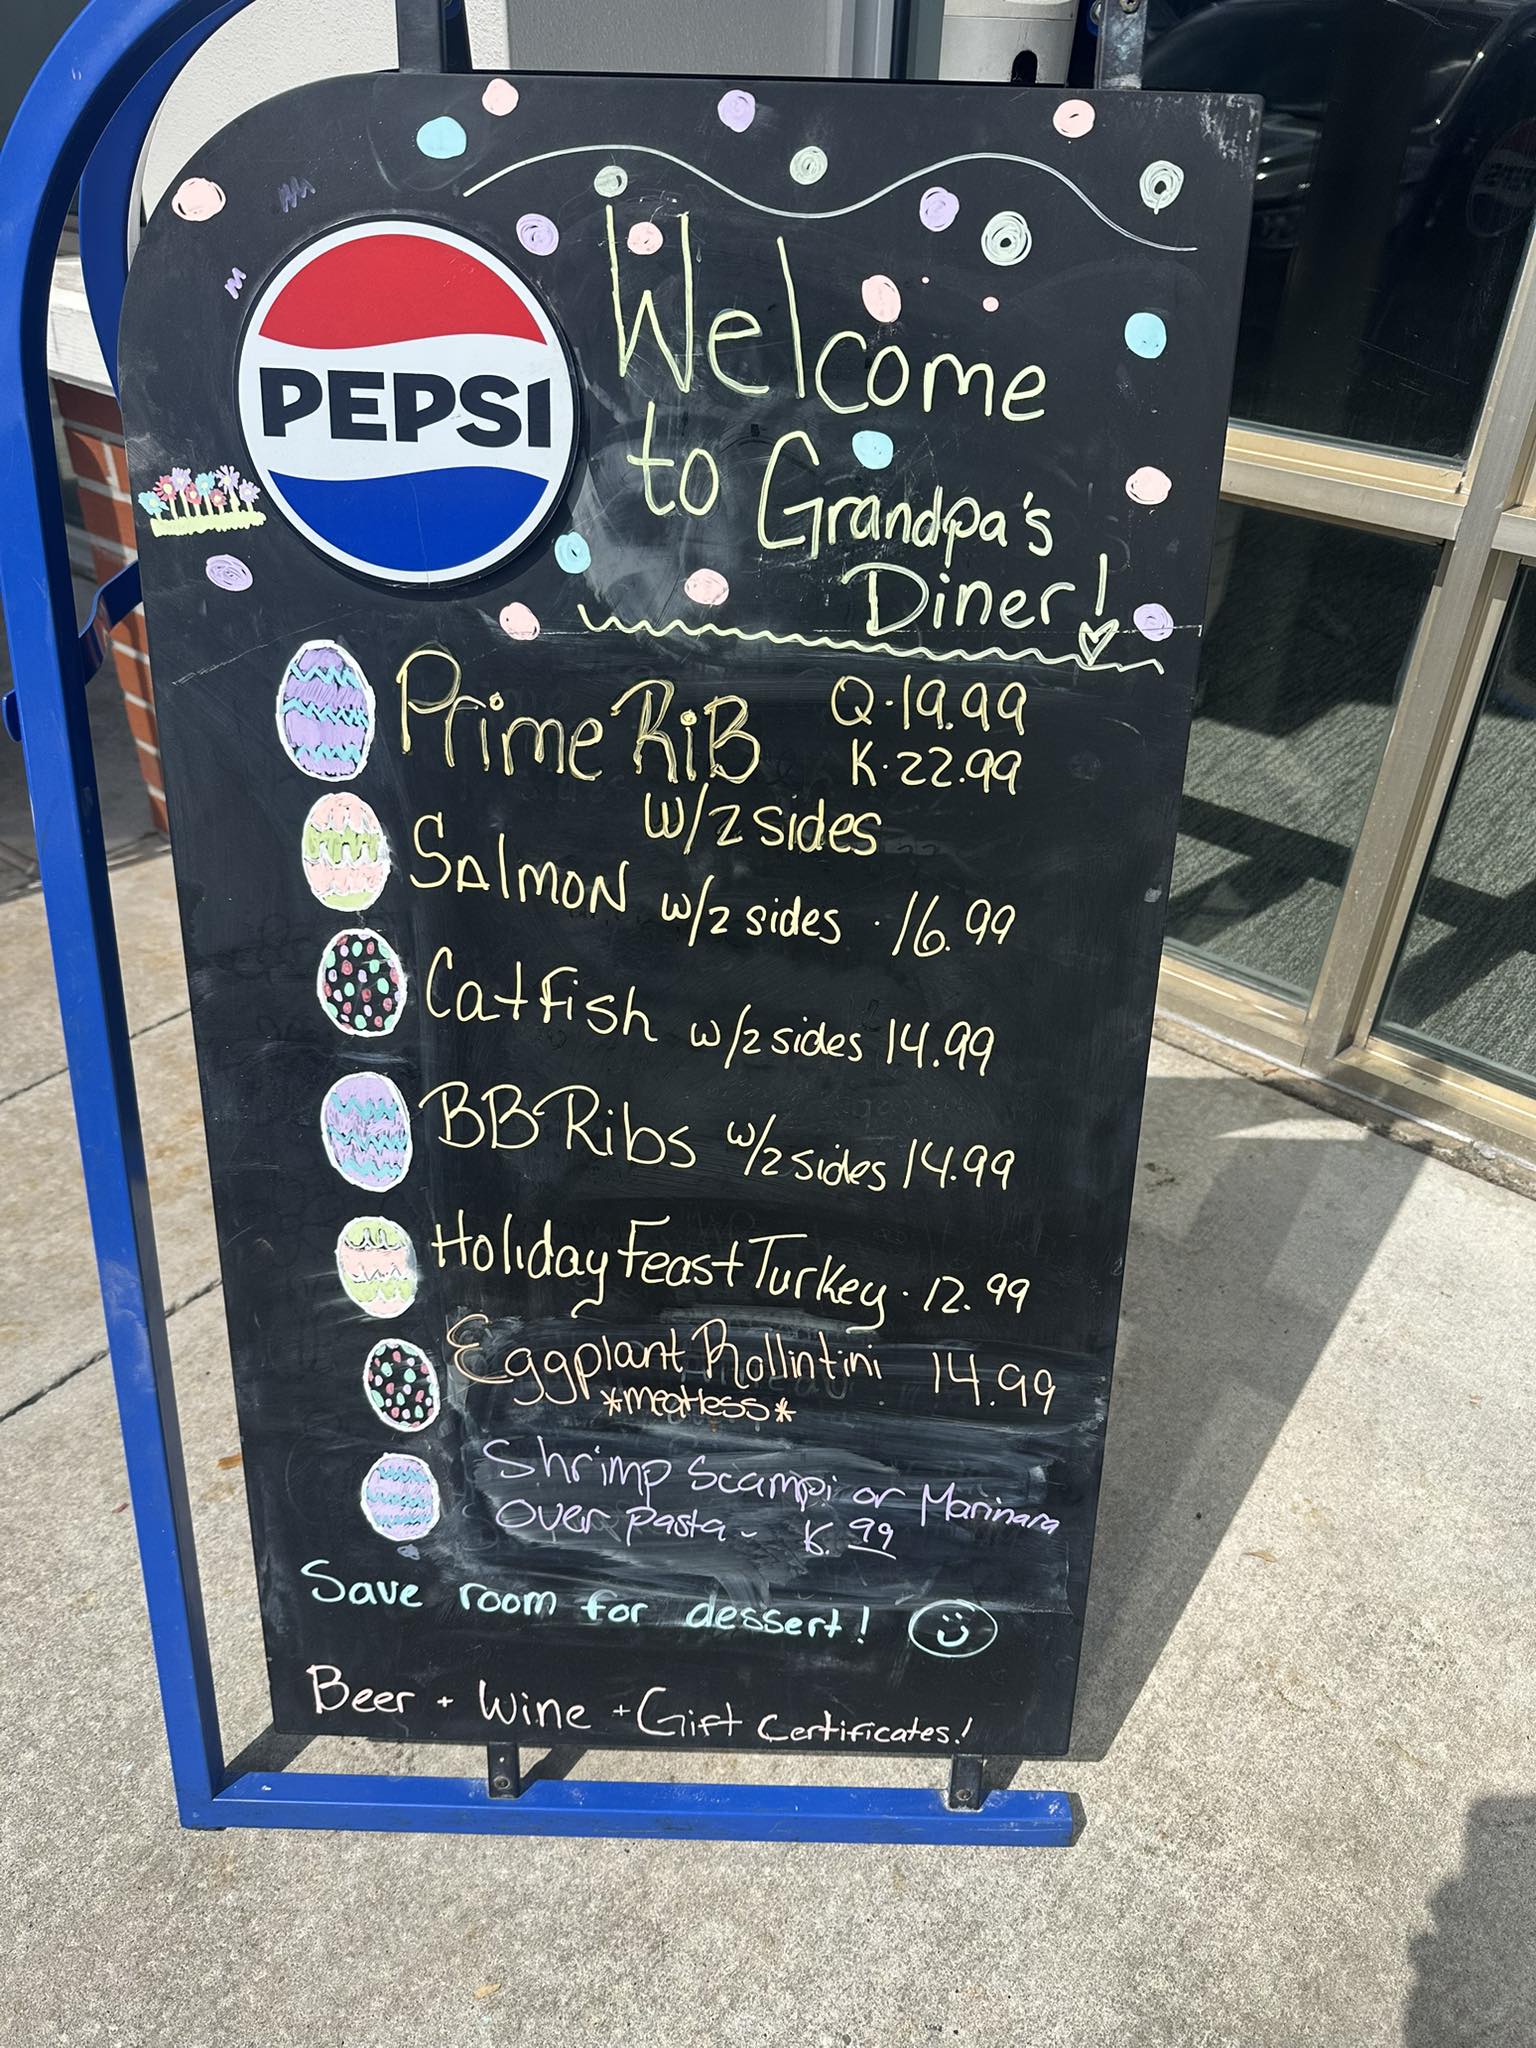 PEPSI
Welcome
to Grandpa's
Diner!
Prime RiB Q.19.99
K.22.99
w/2 sides
Salmon w/2 sides . 16.99
Catfish w/2 sides 14.99
BB Ribs w/2 sides 14.99
Holiday Feast Turkey . 12.99
Eggplant Rollintini 14.99
*meatless*
Shrimp Scampi or Marinara
Over pasta - 99
Save room for dessert!
Beer + Wine + Gift Certificates!